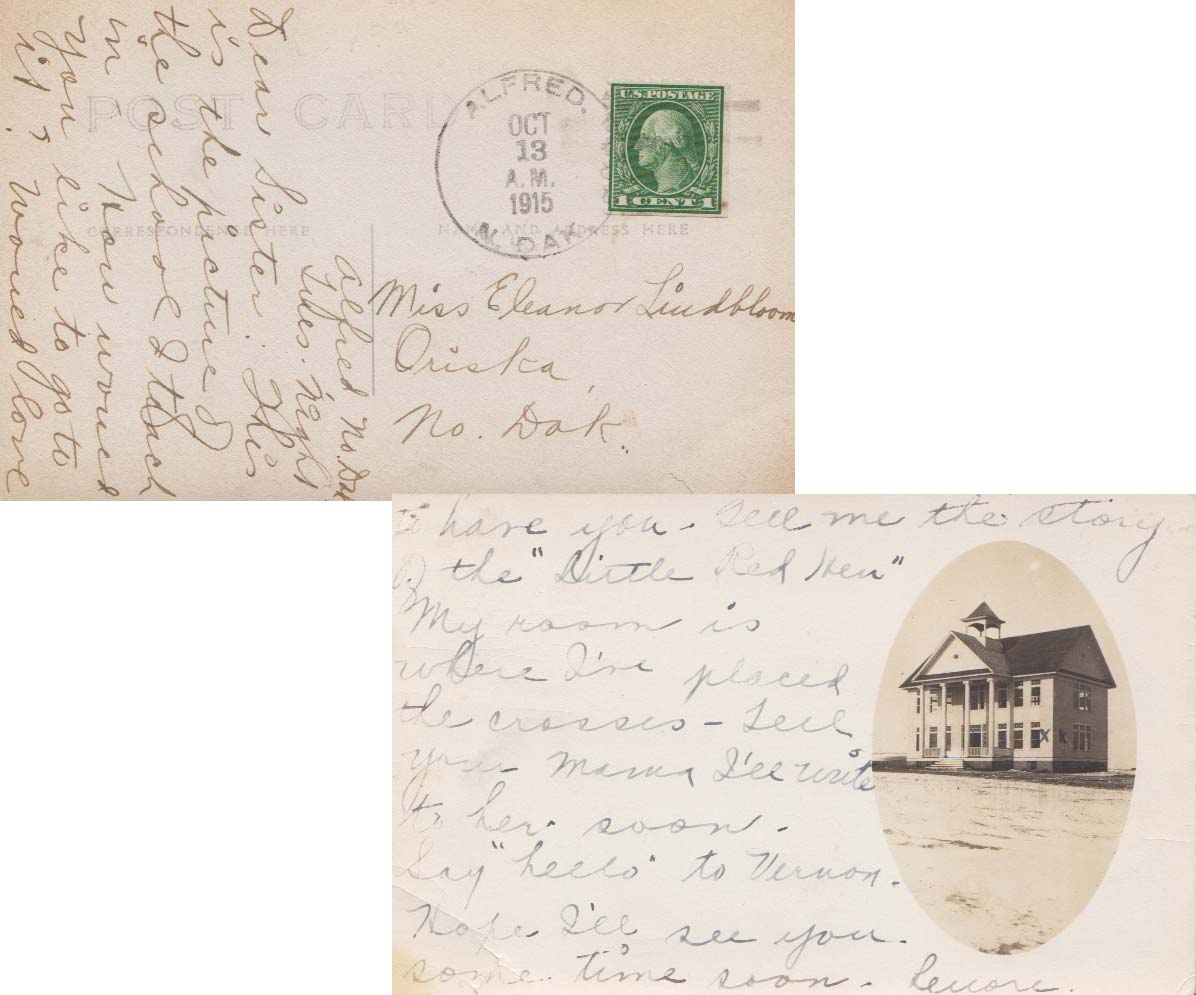 POST CARD
ALFRED.
OCT
13
A.M.
1915
N. DAK.
U.S. POSTAGE
1 CENT 1
CORRESPONDENCE HERE
NAME AND ADDRESS HERE
Miss Eleanor Lindbloom
Oriska,
No. Dak.
Alfred No. Dak
Tues. Night
Dear Sister: This
is the picture of
the school I teach
in. How would
you like to go to
it? Would love
to have you. Tell me the story
of the "Little Red Hen"
My room is
where I've placed
the crosses - Tell
your Mama I'll write
to her soon.
Say "hello" to Vernon.
Hope I'll see you
some time soon. Lenore.
x x